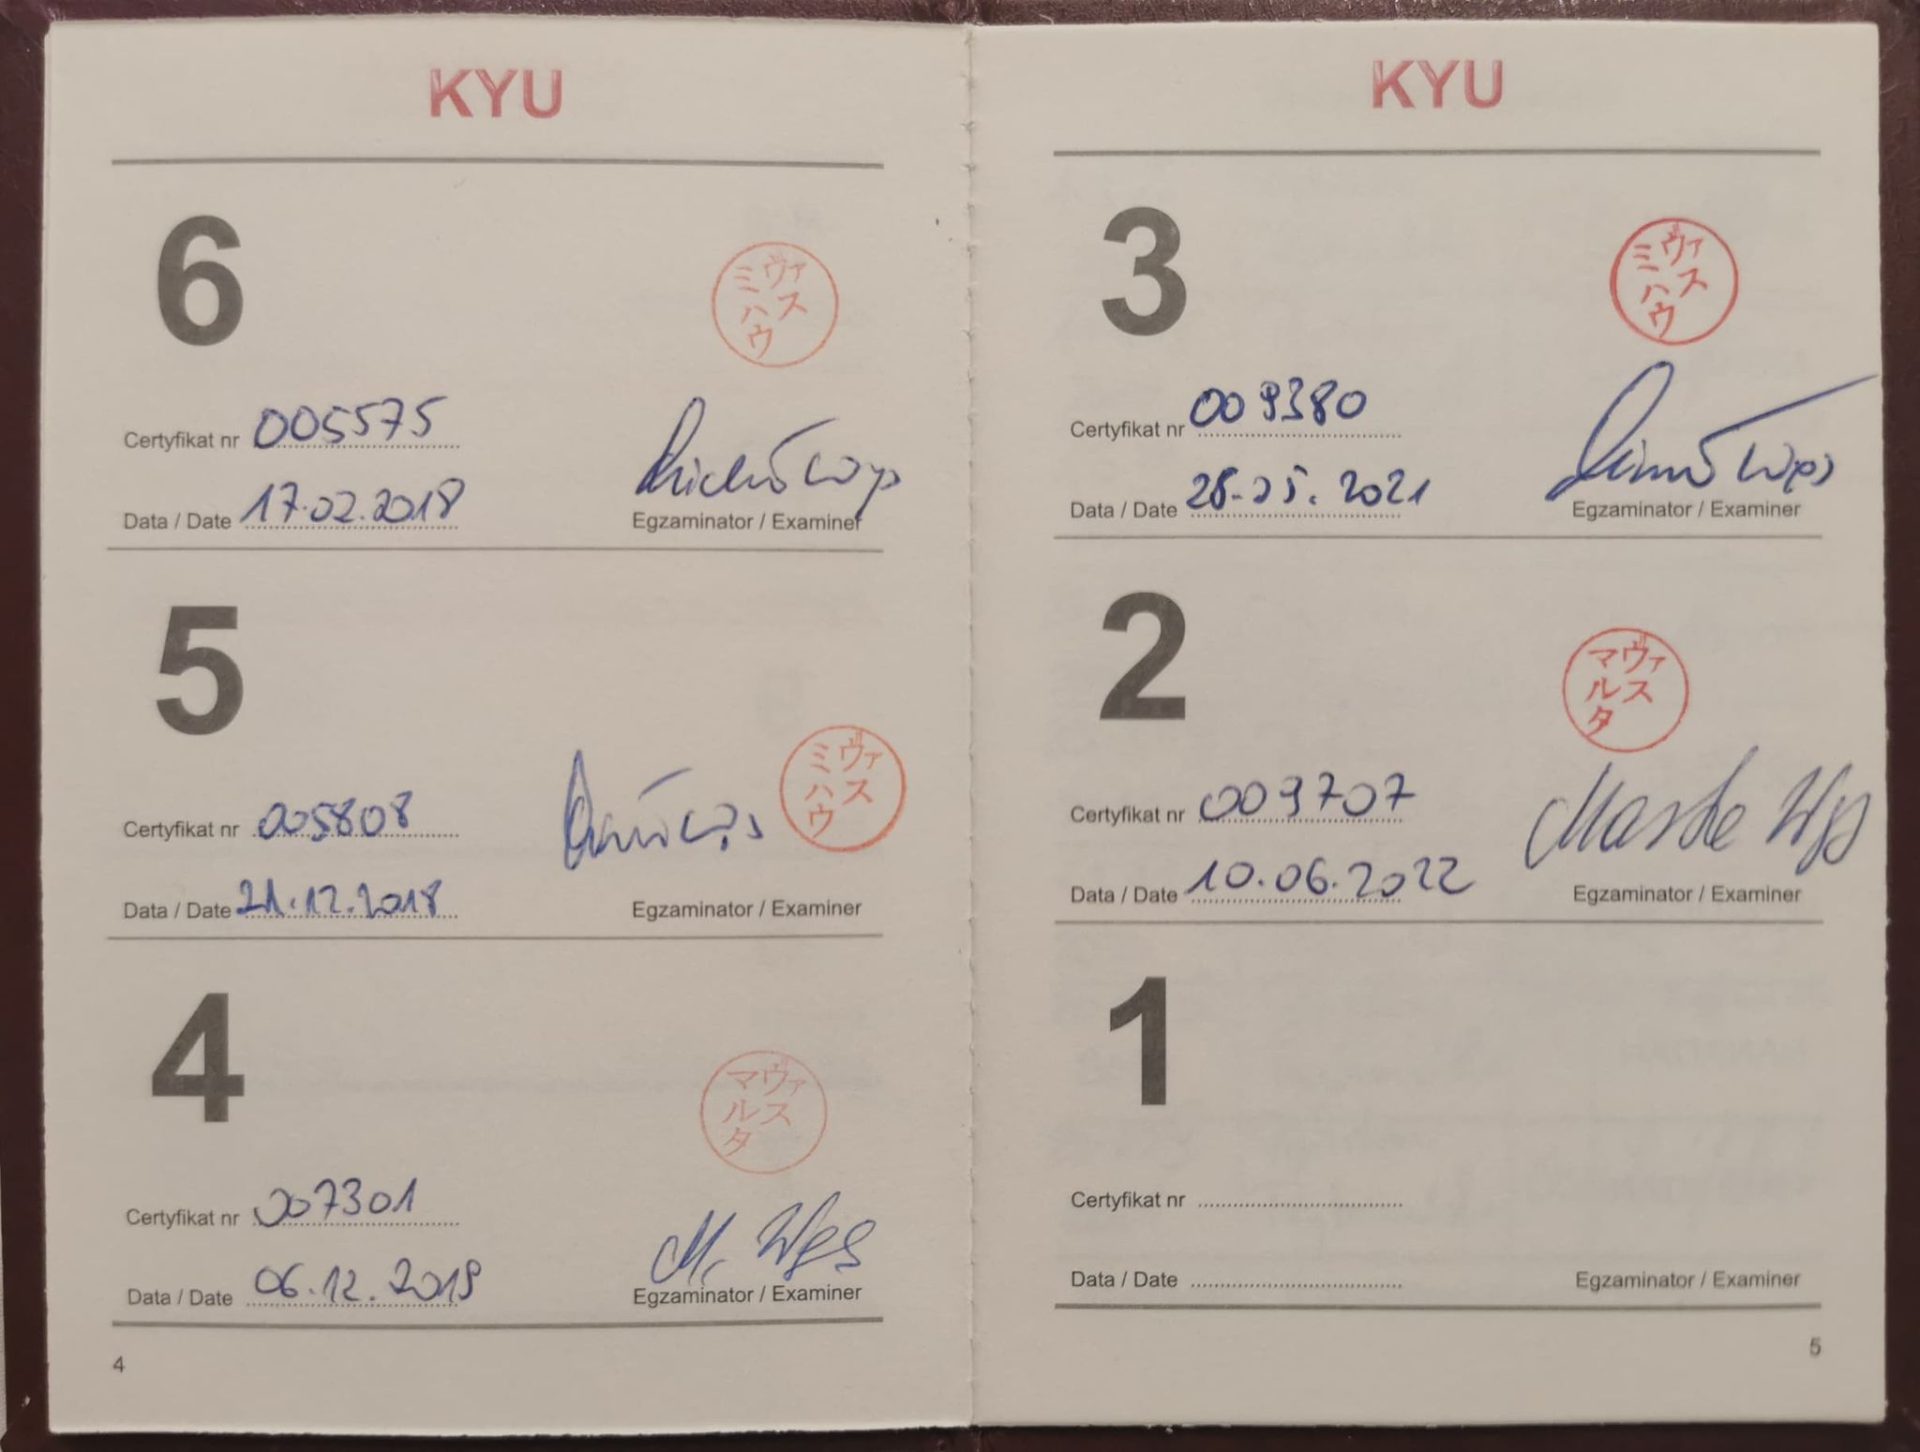 KYU
6
ヴァス
ミハウ
Certyfikat nr 005575
Data / Date 17.02.2018
Egzaminator / Examiner
5
ヴァス
ミハウ
Certyfikat nr 005808
Data / Date 21.12.2018
Egzaminator / Examiner
4
ヴァス
マルタ
Certyfikat nr 007301
M. Wąs
Data / Date 06.12.2019
Egzaminator / Examiner
4
KYU
3
ヴァス
ミハウ
Certyfikat nr 009380
Data / Date 28.05.2021
Egzaminator / Examiner
2
ヴァス
マルタ
Certyfikat nr 009707
Marta Wąs
Data / Date 10.06.2022
Egzaminator / Examiner
1
Certyfikat nr
Data / Date
Egzaminator / Examiner
5